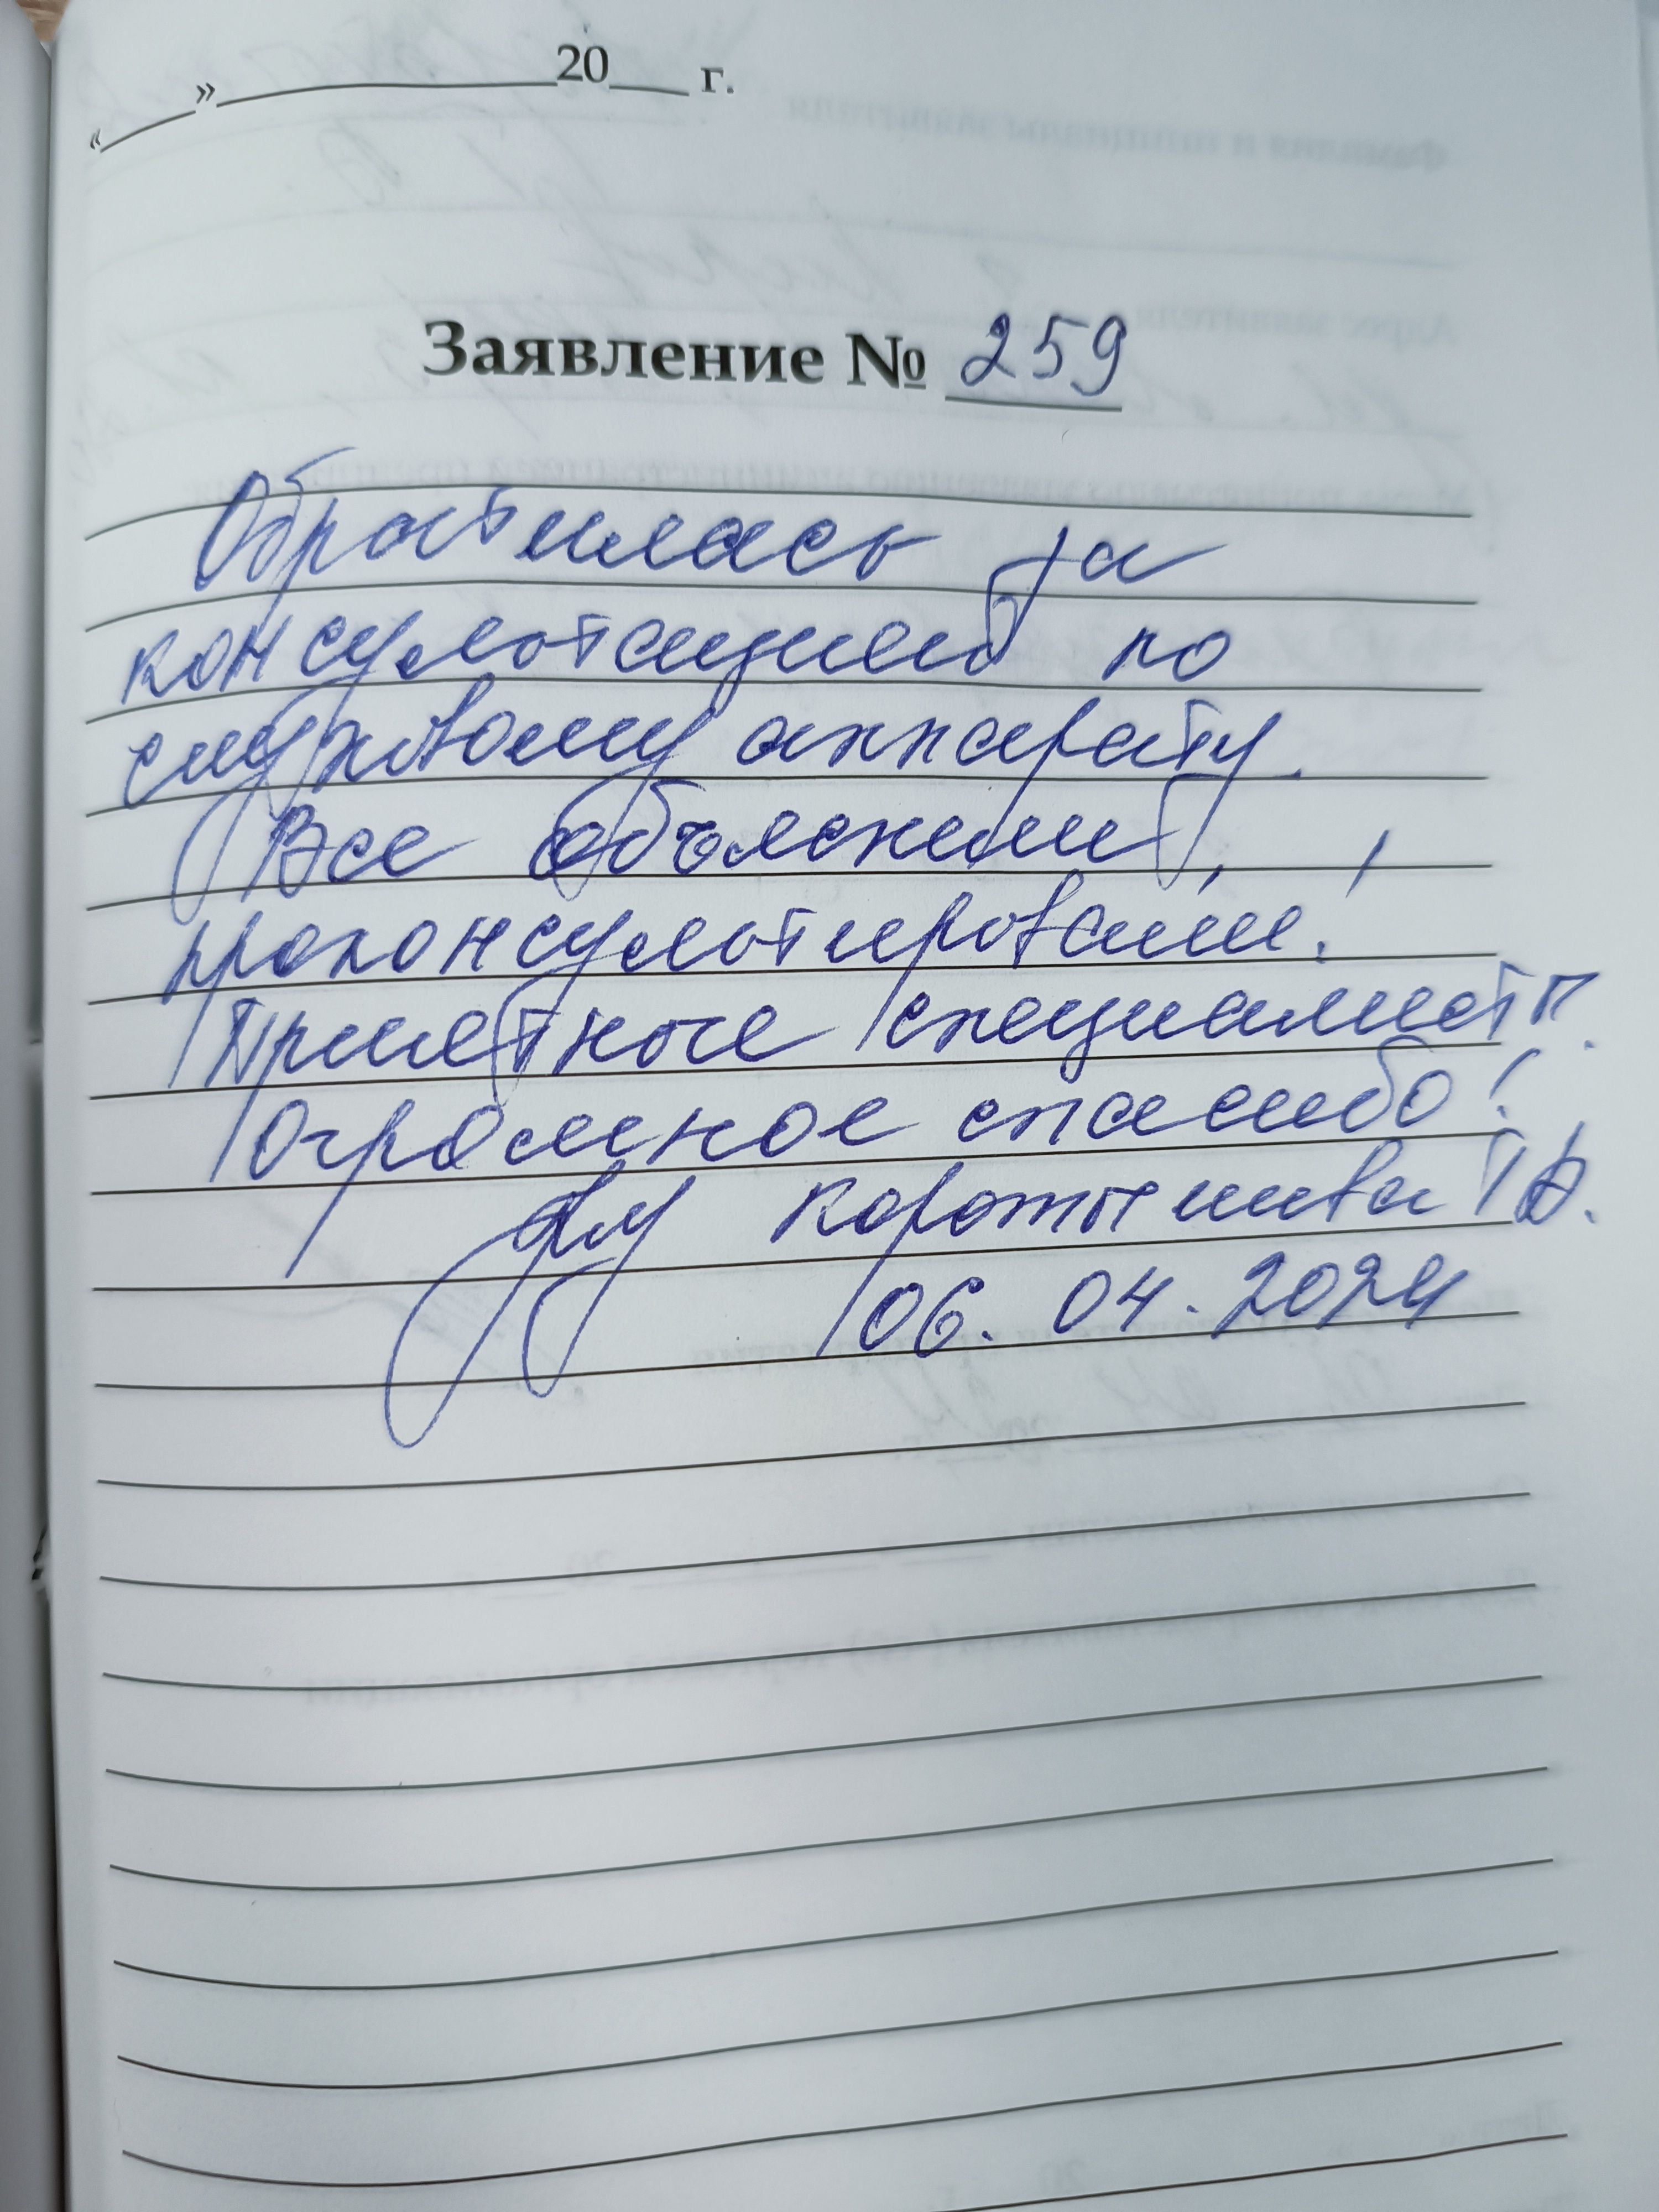 «___»____________20___ г.
Заявление № 259
Обратилась за
консультацией по
слуховому аппарату.
Все объяснили,
проконсультировали!
Приятные специалисты.
Огромное спасибо!
06.04.2024